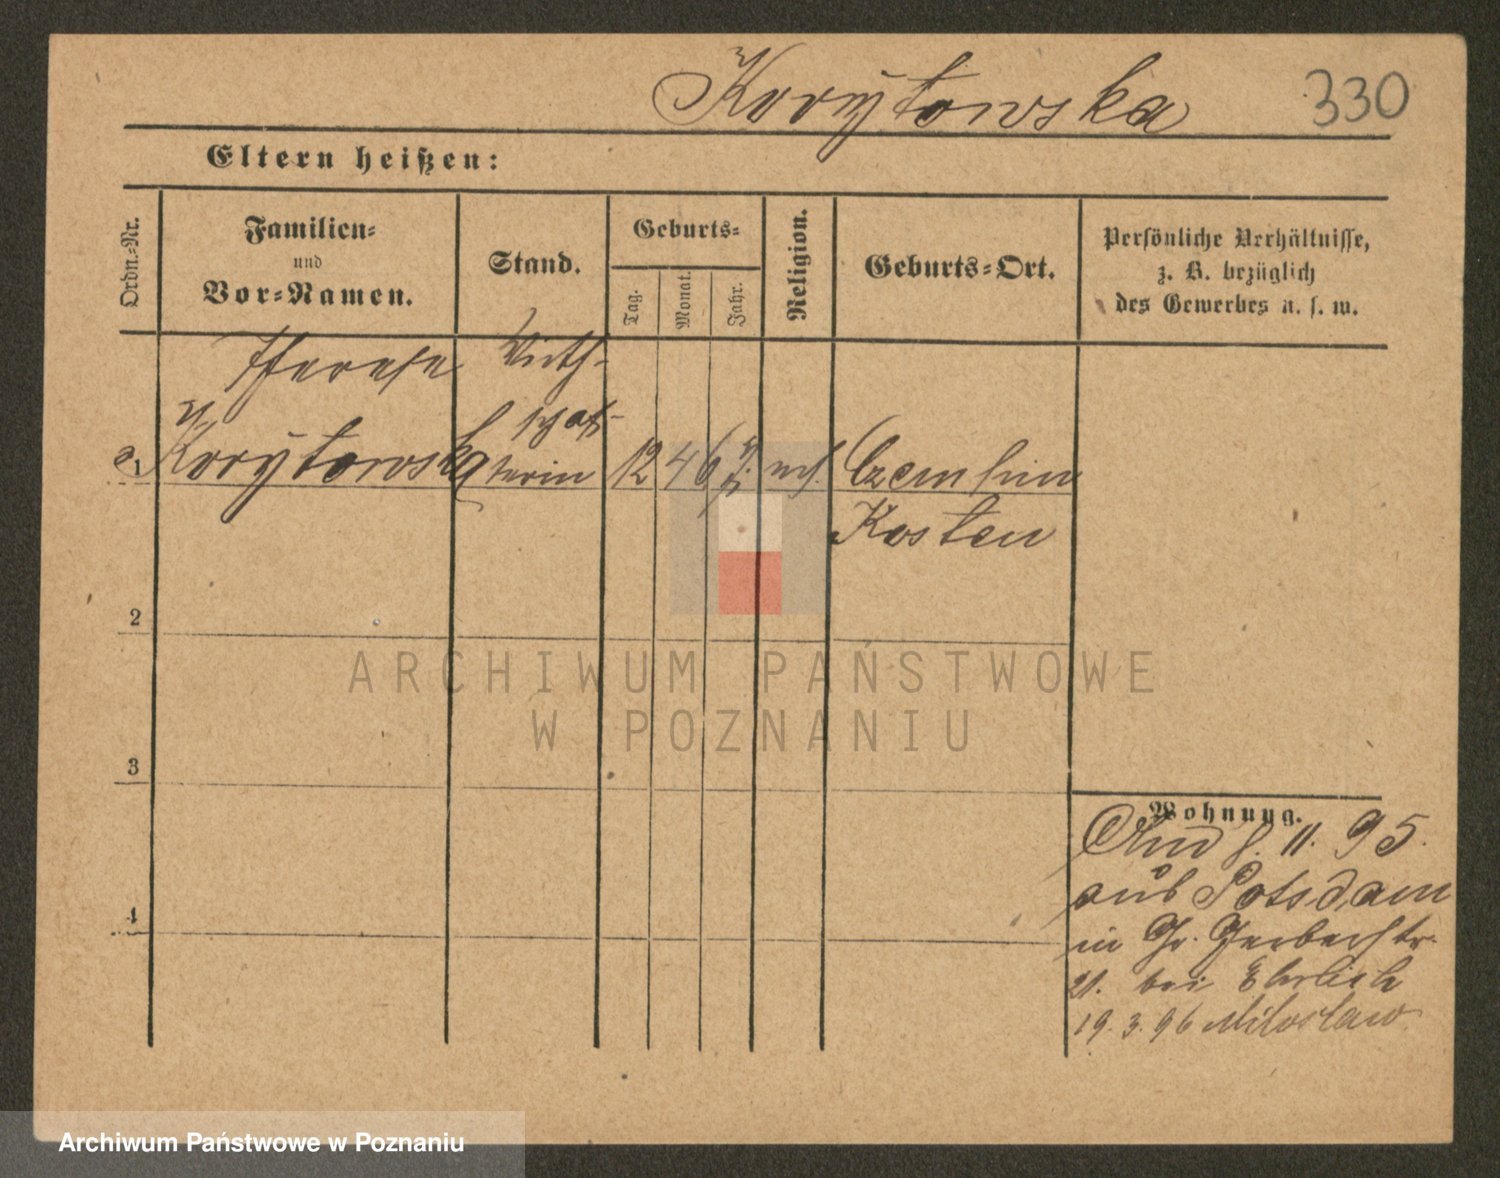 Korytowska 330
Eltern heißen:
Ordn.-Nr.
Familien-
und
Vor-Namen.
Stand.
Geburts-
Tag.
Monat.
Jahr.
Religion.
Geburts-Ort.
Persönliche Verhältnisse,
z. B. bezüglich
des Gewerbes u. s. w.
Therese Wirth-
v. schaf-
1 Korytowska terin 12 4 6 Czempin
Kosten
2
3
4
Wohnung.
8. 11. 95.
aus Potsdam
in Gr. Gerberstr.
21. bei Ehrlich
19. 3. 96 Miloslaw
ARCHIWUM PAŃSTWOWE
W POZNANIU
Archiwum Państwowe w Poznaniu